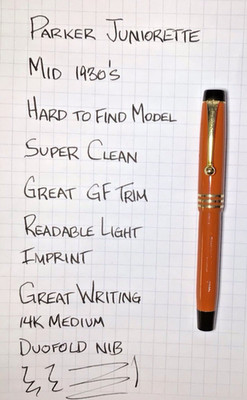 Parker Juniorette
Mid 1930's
Hard to Find Model
Super Clean
Great GF Trim
Readable Light
Imprint
Great Writing
14K Medium
Duofold Nib